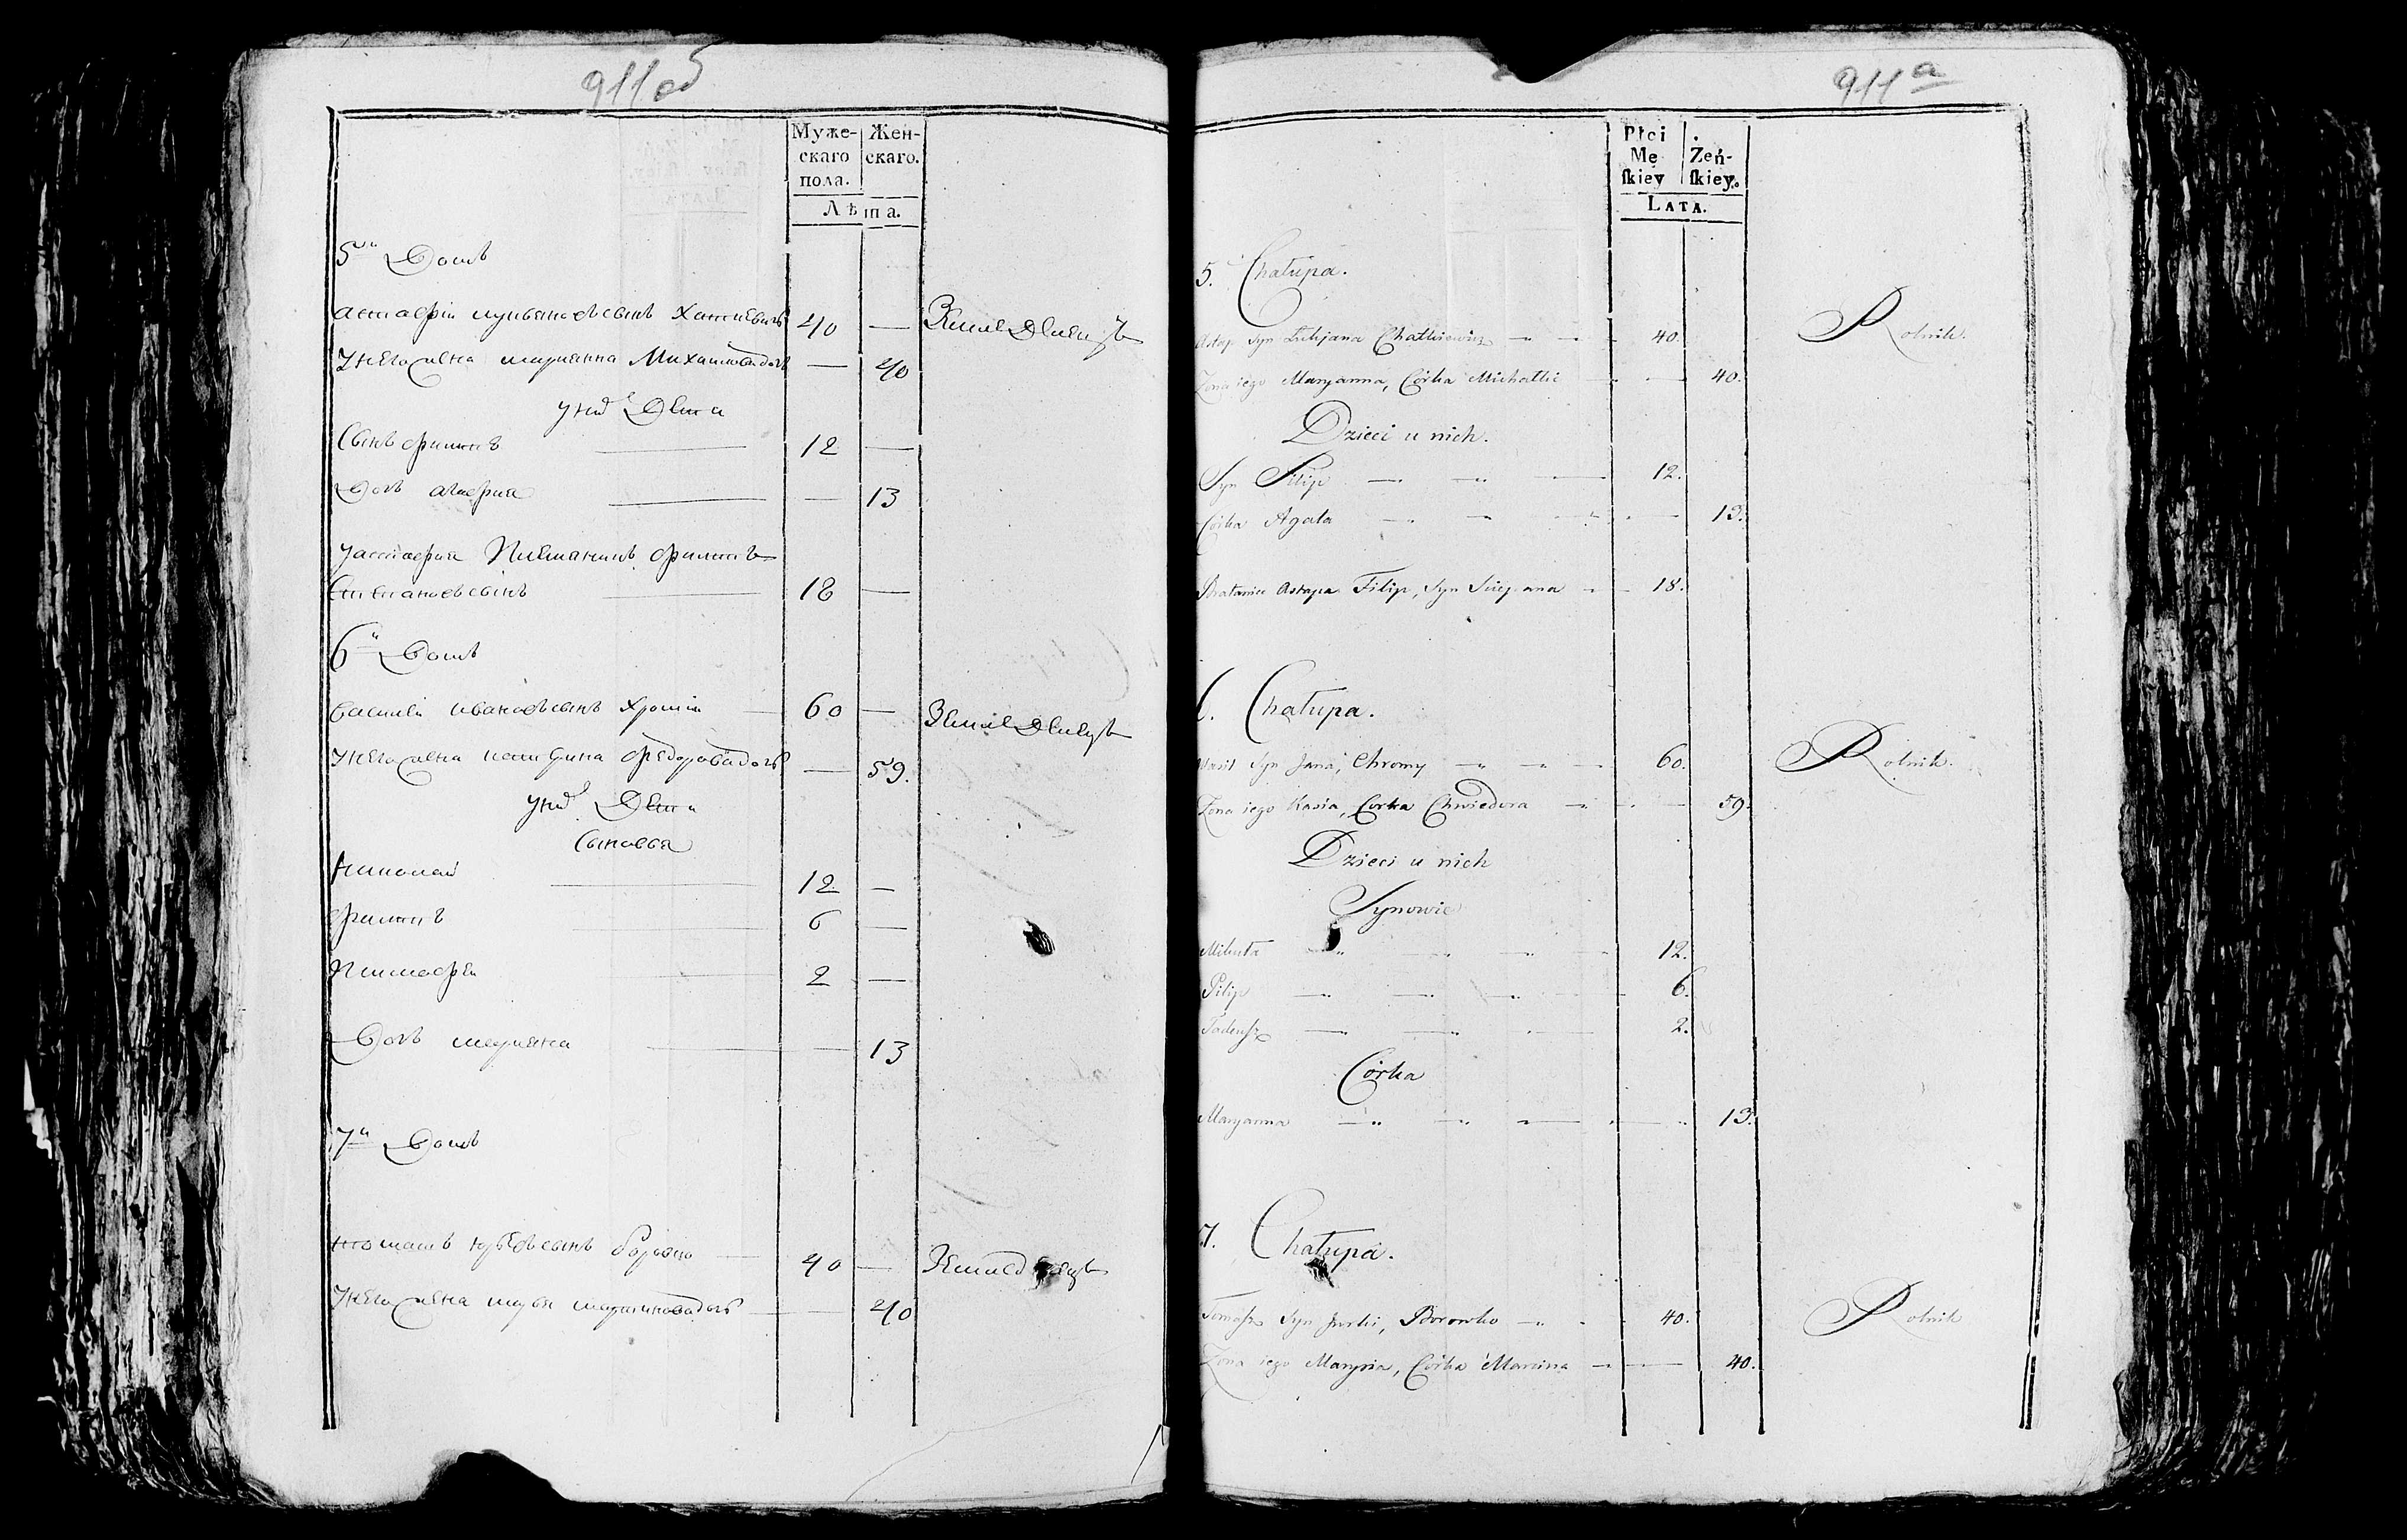 911об
Муже-
скаго
пола.
Жен-
скаго.
Лѣта.
5й Домъ
Астафій Лукьяновъ сынъ Хаткевичь 40 — Земледѣлецъ
У него жена Марианна Михайлова дочь — 40
У нихъ Дети
Сынъ Филипъ 12 —
Дочь Агафия — 13
У Астафия Племяникъ Филипъ
Степановъ сынъ 18 —
6й Домъ
Василей Ивановъ сынъ Хромій 60 — Земледѣлецъ
У него жена Катерина Федорова дочь — 59.
У нихъ Дети
Сыновья
Николай 12 —
Филипъ 6 —
Тимофей 2 —
Дочь Марияна — 13
7й Домъ
Томашъ Юрьевъ сынъ 40 — Земледелецъ
У него жена Марья Мартинова дочь — 40
911а
Płci
Mę
skiey
Żeń-
skiey.
LATA.
5. Chałupa.
Astap Syn Łukjana Chatkiewicz 40. Rolnik.
Żona iego Maryanna, Córka Michałki 40.
Dzieci u nich.
Syn Filip 12.
Córka Agata 13.
Bratanic Astapa Filip, Syn Sciepana 18.
6. Chałupa.
Wasil Syn Jana, Chromy 60. Rolnik.
Żona iego Kasia, Corka Chwiedora 59.
Dzieci u nich
Synowie
Mikuta 12.
Filip 6.
Tadeusz 2.
Córka
Maryanna 13.
7. Chałupa.
Tomasz Syn Jurki, Borowko 40. Rolnik
Żona iego Marysia, Córka Marcina 40.